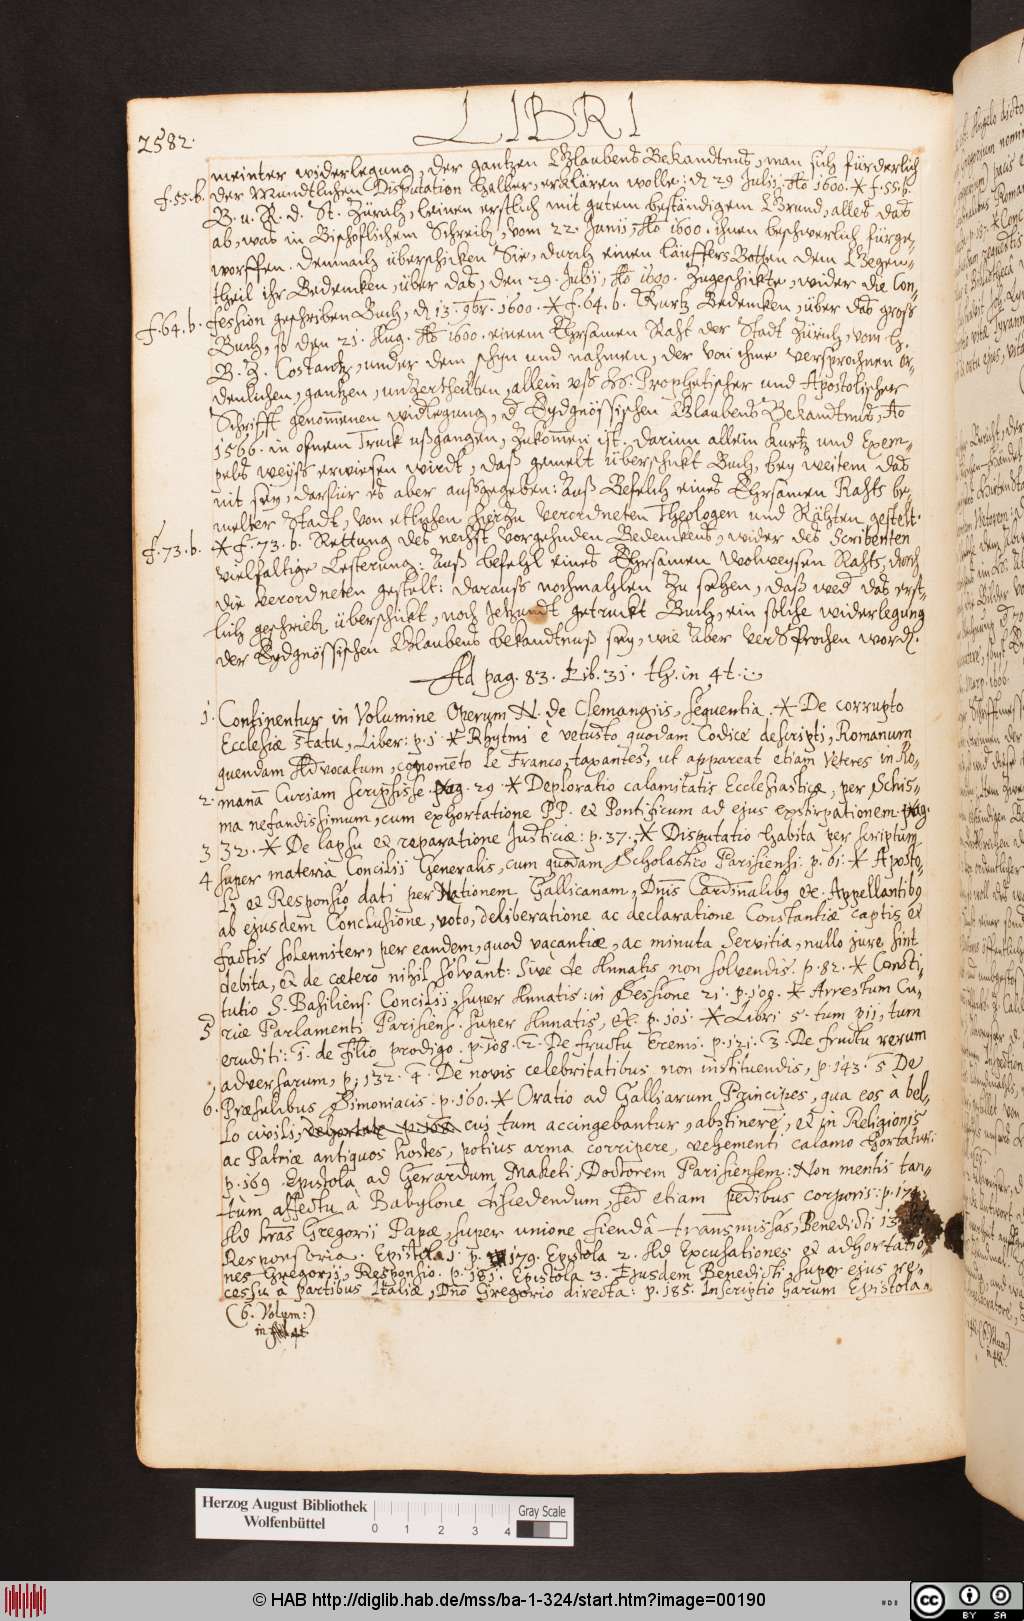 LIBRI
2582.
meinter widerlegung, der gantzen Glaubens Bekandtnus, man sich fürderlich
f.55.b. der Mundtlichen Disputation halber, erklären wolle: d 29 Julij Ao 1600. * f.55.b.
B. u. R. d. St. Zürich, leinen erstlich mit gutem beständigem Grund, alles das
ab, was in Bischoflichem Schreib, vom 22 Junii, Ao 1600. ihnen beschwerlich fürge-
worffen. Demnach überschicken Sie, durch einen läuffers Botten dem Gegen-
theil ihr Bedencken, über das, den 29. Julij, Ao 1600. Zugeschickte, wider die Con-
f.64.b. fession geschriben Buch, d 13. 9br. 1600. * f.64.b. Kurtz Bedencken, über das groß
Buch, so den 21. Aug. Ao 1600. einem Ehrsamen Raht der Stadt Zürich, vom H.
B. Z. Costantz, under dem schyn und nahmen, der von ihme versprochnen or-
denlichen, gantzen, unzertheilten, allein uss H. Prophetischer und Apostolischer
Schrifft genommenen widlegung, d Eydgnössischen Glaubens Bekandtnus, Ao
1566. in ofnem Truck ußgangen, zukommen ist. Darinn allein kurtz und Exem-
pels weyß erwiesen wirdt, daß gemelt überschickt Buch, bey weitem das
nit sey, darfür es aber außgegeben: Auß Befelch eines Ehrsamen Rahts be-
melter Stadt, von etlichen hierzu verordneten Theologen und Rähten gestelt.
f.73.b. * f.73.b. Rettung des nechst vorgehnden Bedenckens, wider des Scribenten
vielfaltige Lesterung: Auß befehl eines Ehrsamen Wolweysen Rahts, durch
die verordneten gestelt: daraus nochmahlen zu sehen, daß wed das erst-
lich geschrieb überschickt, noch Jetzundt getruckt Buch, ein solche widerlegung
der Eydgnössischen Glaubens bekandtnuß sey, wie Aber versprochen word.
Ad pag. 83. Lib. 31. th. in 4t.
1. Continentur in Volumine Operum N. de Clemangiis, sequentia. * De corrupto
Ecclesiæ statu, Liber: p. 1 * Rhytmi è vetusto quodam Codice descripti, Romanum
quendam Advocatum, cognometo le Franco, taxantes, ut appareat etiam Veteres in Ro-
2. manā Curiam scripsisse. pag. 29. * Deploratio calamitatis Ecclesiasticæ, per Schis-
ma nefandissimum, cum exhortatione PP. et Pontificum ad ejus exstirpationem. pag.
3 32. * De lapsu et reparatione Justiciæ: p. 37. * Disputatio habita per scriptum
4 super materia Concilij Generalis, cum quodam Scholastico Parisiensi. p. 61. * Aposto-
li, et Responsio dati per Nationem Gallicanam, Dnis Cardinalibus etc. Appellantibus
ab ejusdem Conclusione, voto, deliberatione ac declaratione Constantiæ captis et
factis solenniter, per eandem, quod vacantiæ, ac minuta Servitia, nullo jure sint
debita, et de cætero nihil solvant: Sive de Annatis non solvendis. p. 82. * Consti-
tutio S. Basiliens. Concilij super Annatis: in Sessione 21. p. 100. * Arrestum Cu-
5 riæ Parlamenti Parisiens. super Annatis, etc. p. 101. * Libri 5. tum pij, tum
eruditi: 1. de Filio prodigo. p. 108. 2. De fructu Eremi. p. 121. 3. De fructu rerum
adversarum, p. 132. 4. De novis celebritatibus non instituendis, p. 143. 5 De
6. Præsulibus Simoniacis. p. 160. * Oratio ad Galliarum Principes, qua eos à bel-
lo civili, cui tum accingebantur, abstinere, et in Religionis
ac Patriæ antiquos hostes, potius arma corripere, vehementi calamo hortatur:
p. 169. Epistola ad Gerardum Maketi, Doctorem Parisiensem: Non mentis tan-
tùm affectu à Babylone discedendum, sed etiam pedibus corporis: p. 174.
Ad Lras Gregorii Papæ, super unione fiendâ transmissas, Benedicti 13.
Responsoria. Epistola 1. p. 179. Epistola 2. Ad Excusationes et adhortatio-
nes Gregorij, Responsio. p. 181. Epistola 3. Ejusdem Benedicti, super ejus re-
cessu à partibus Italiæ, Dno Gregorio directa: p. 185. Inscriptio harum Epistola-
(6. Volum:)
in 4t.
Herzog August Bibliothek
Wolfenbüttel
0 1 2 3 4
Gray Scale
© HAB http://diglib.hab.de/mss/ba-1-324/start.htm?image=00190
cc BY SA